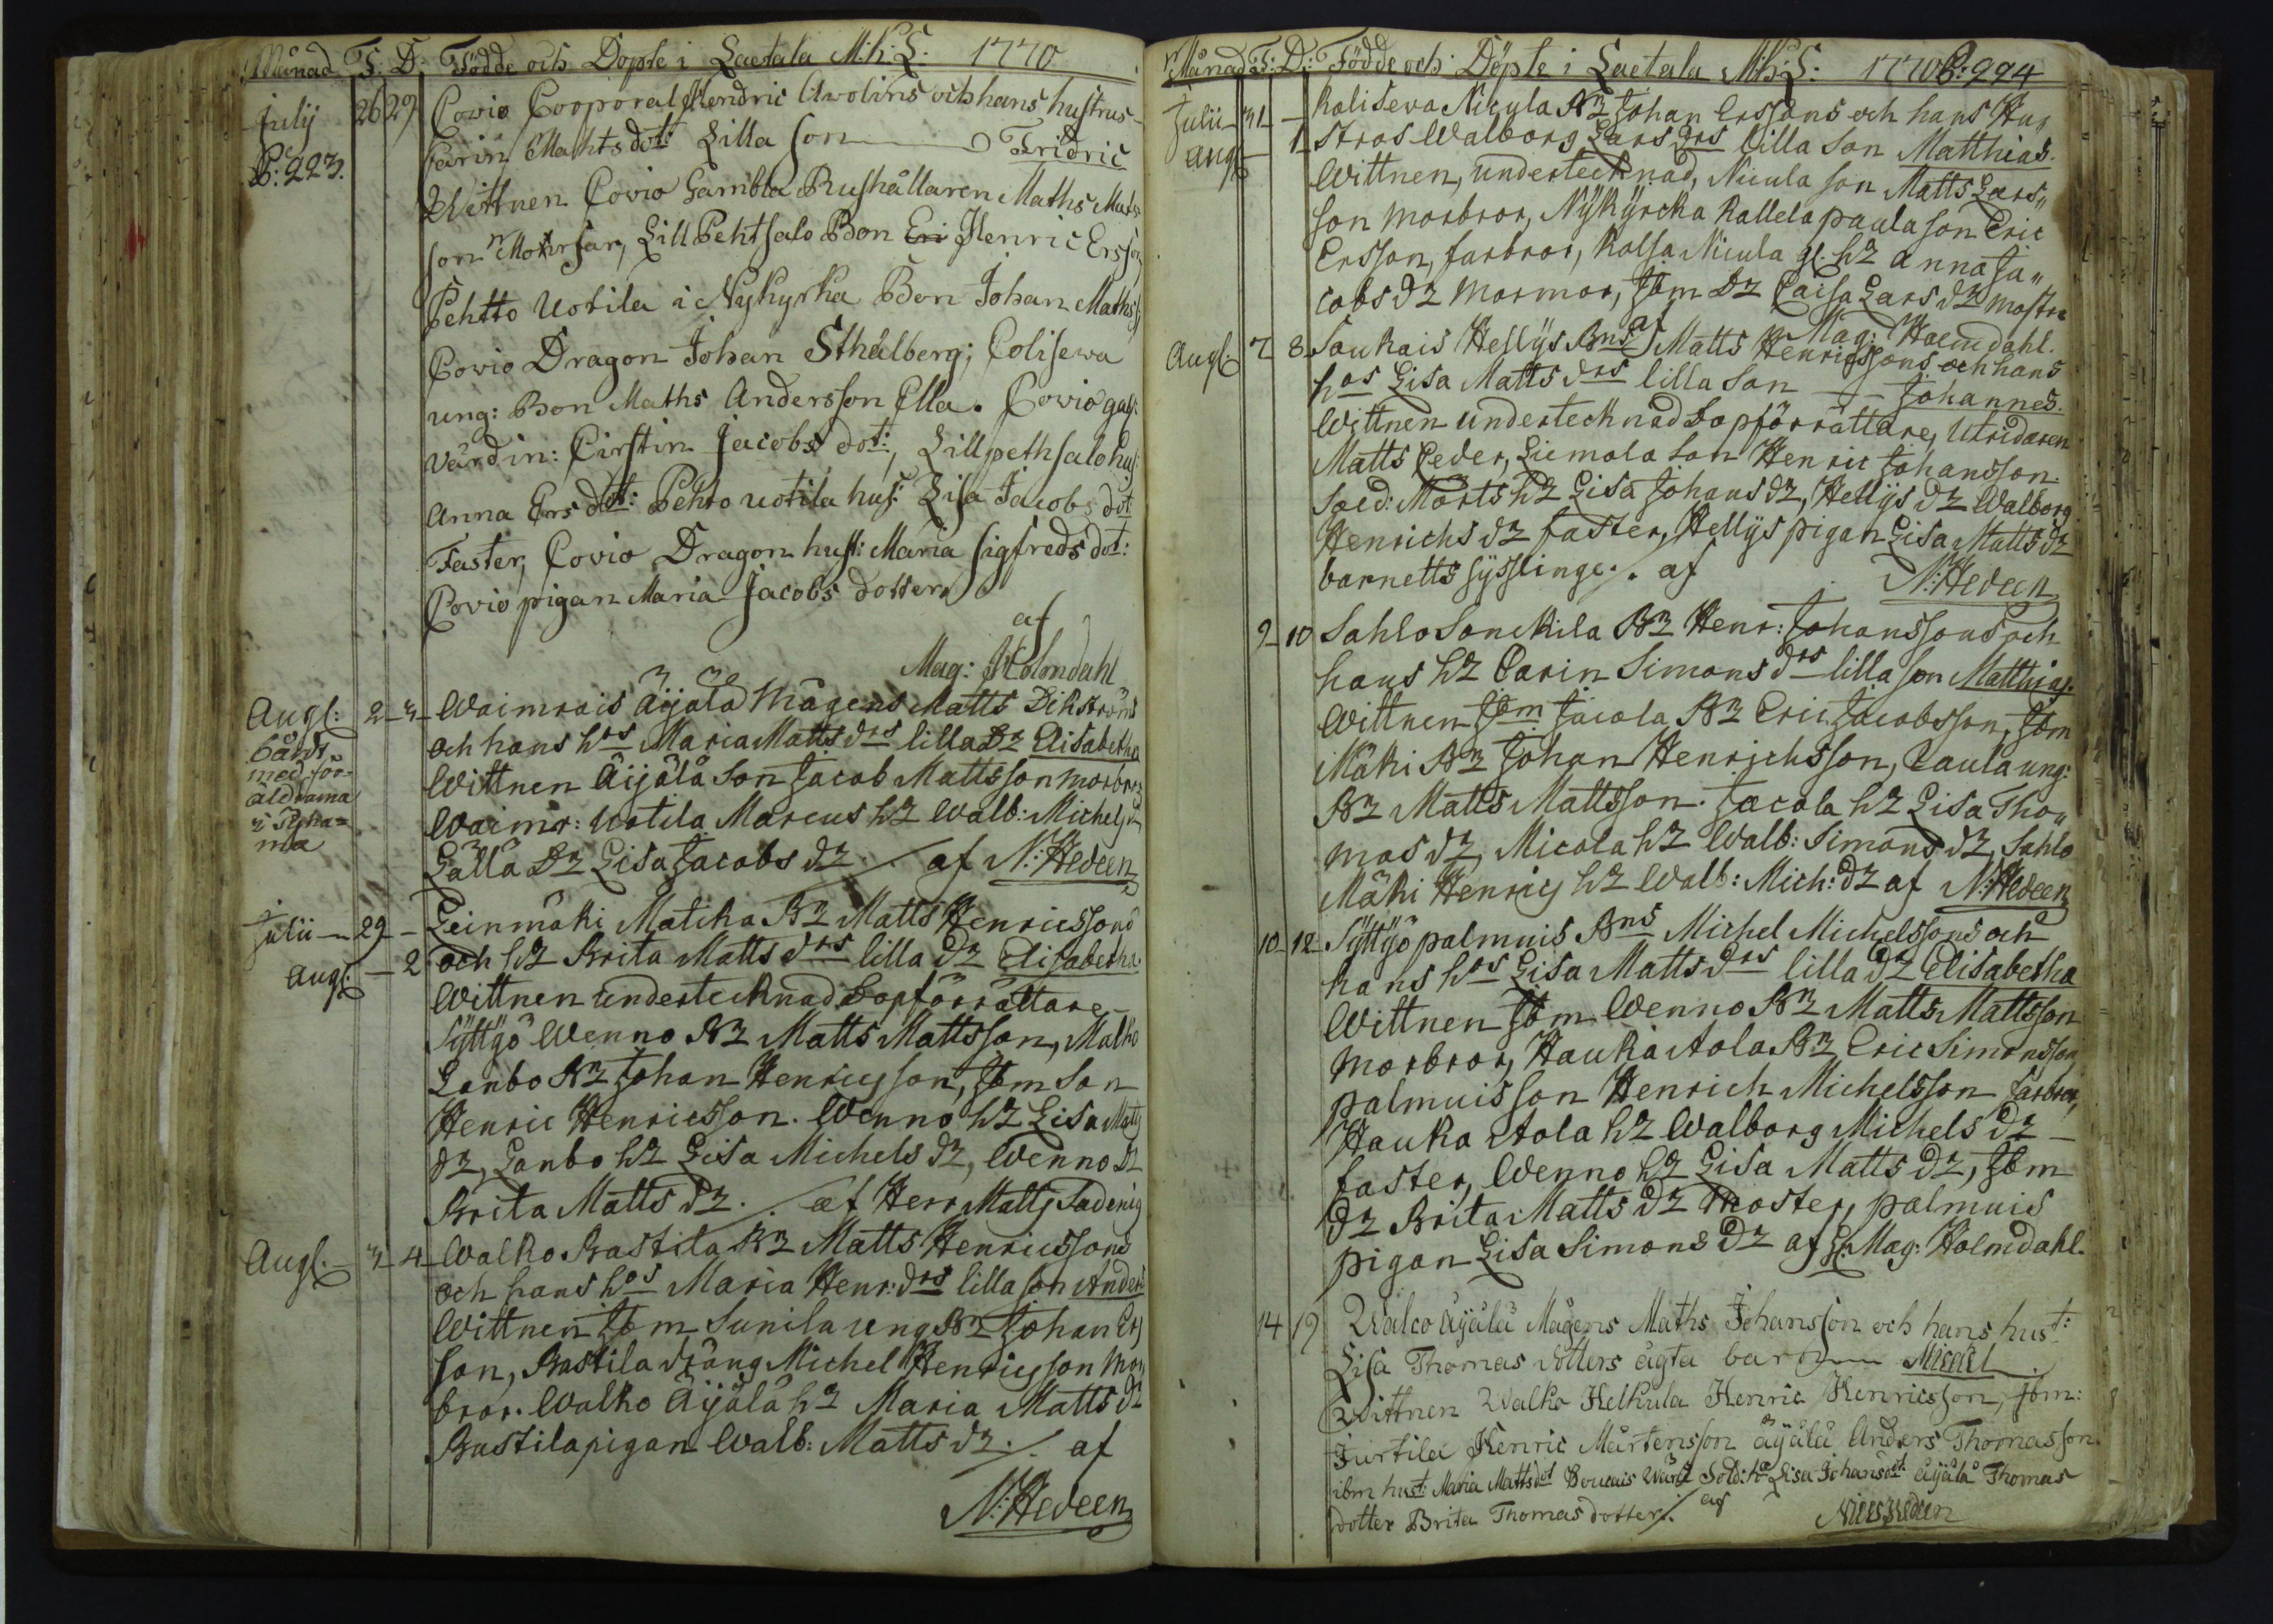 Månad F: D: Födde och Döpte i Laetala M:k:S: 1770
Julij 26 29 Covio Cooporal Hendric Avolins och hans hustrus
P: 223. Carin Mahts dot: Lilla son Fridric
Wittnen Covio Gambla Rushållaren Maths Mats
son Morfar, Lill Pehtsalo Bon Eri Henric Ersson
Pehtto Uotila i Nykyrka Bon Johan Maths
Covio Dragon Johan Sthålberg; Colisewa
ung: Bon Maths Andersson Ella. Covio gaf:
värdin: Cirstin Jacobs dot:, Lillpethsalo hus:
Anna Ers dot: Pehto uotila hus: Lisa Jacobs dot
Faster, Covio Dragon hust: Maria Sigfreds dot:
Covio pigan Maria Jacobs dotter
af
Mag: Holmdahl
Aug: 2 3 Waimrais Äijälä Mågens Matts Dikströms
och hans hrs Maria Matts drs lilla Dr Elisabetha
Bärdt
med för=
äldrarna
Wittnen Äijälä son Jacob Mattsson morbror
Waimr: Uotila Marcus hr Walb: Michels
Lällä Dr Lisa Jacobs dr ./. af N: Hedeen
Julii 29 Leinmäki Matika Br Matts Henricssons
Aug: 2 och hr Brita Matts drs lilla dr Elisabetha
Wittnen undertecknad Dopförrättare
Syttyö Wenno Br Matts Mattsson, Malko
Lanbo Br Johan Henricsson, Jbm Son
Henric Henricsson. Wenno hr Lisa Matts
dr, Lanbo hr Lisa Michels dr, Wenno dr
Brita Matts dr ./. af Herr Matts Sadenig
Aug: 3 4 Walko Bastila Br Matts Henricssons
och hans hrs Maria Henr: drs lilla son Anders
Wittnen Jbm Sunila ung Br Johan Ers
son, Bastila dräng Michel Henricsson Mor
bror. Walko Äijälä hr Maria Matts dr
Bastila pigan Walb: Matts dr ./. af
N: Hedeen
Månad F: D: Födde och Döpte i Laetala M:k:S: 1770 P: 224
Julii 31 Kolisewa Nicula Br Johan Erssons och hans Hu,,
Aug: 1 stros Walborg Lars drs lilla Son Matthias.
Wittnen, undertecknad, Nicula son Matts Lars,,
son morbror, Nykyrcka Kallela paula son Eric
Ersson, farbror, Kolsa Nicula gl. hr Anna Ja,,
cobs dr Mormor, Jbm Dr Caisa Lars dr moster
af Mag: Holmdahl.
Aug: 7 8 Soukais Hellys Bns Matts Henricssons och hans
hrs Lisa Matts drs lilla Son Johannes.
Wittnen undertecknad Dopförrättare, Utridaren
Matts Ceder, Liemola Son Henric Johansson.
Sold: Mörts hr Lisa Johans dr, Hellys dr Walborg
Henrichs dr faster, Hellys pigan Lisa Matts dr
barnetts sysslinge ./. af N: Hedeen
9 10 Sahlo Sonckila Br Henr: Johanssons och
hans hr Carin Simons drs lilla son Matthias.
Wittnen Jbm Jacola Br Eric Jacobsson, Jbm
Mäki Br Johan Henrichsson, Caula ung:
Br Matts Mattsson. Jacola hr Lisa Tho,,
mas dr, Micola hr Walb: Simons dr, Sahlo
Mäki Henrics hr Walb: Mich: dr af N: Hedeen
10 12 Syttyö palmuis Bns Michel Michelssons och
hans hrs Lisa Matts drs lilla dr Elisabetha
Wittnen Jbm Wenno Br Matts Mattsson
Morbror, Hauka Aola Br Eric Simonsson
palmuis son Henrich Michelsson farbror,
Hauka Aola hr Walborg Michels dr
faster, Wenno hr Lisa Matts dr, Jbm
dr Brita Matts dr moster, palmuis
pigan Lisa Simons dr af Mag: Holmdahl.
14 19 Walco äijälä Mågens Maths Johansson och hans hust:
Lisa Thomas dotters ägta barn Micael
Wittnen Walko Kelkula Henric Henricsson, Jbm:
Jurtila Henric Mårtensson äyälä Anders Thomasson
ibm hust: Maria Mattsdot Sold: hr Lisa Johansdot äijälä Thomas
dotter Brita Thomas dotter ./. af Nils Hedeen